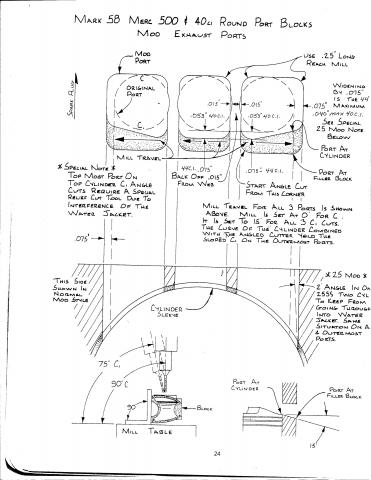 MARK 58 MERC 500 & 40ci ROUND PORT BLOCKS
MOD EXHAUST PORTS
MOD
PORT
USE .25" LONG
REACH MILL
SPARK PLUG
ORIGINAL
PORT
C
.015"
.015"
.055" 40C.I.
.055" 40C.I.
WIDENING
BY .075"
IS THE 44"
MAXIMUM
.040" MAX 40CI
.075"
SEE SPECIAL
25 MOD NOTE
BELOW
PORT AT
CYLINDER
MILL TRAVEL
* SPECIAL NOTE *
TOP MOST PORT ON
TOP CYLINDER C. ANGLE
CUTS REQUIRE A SPECIAL
RELIEF CUT TOOL DUE TO
INTERFERENCE OF THE
WATER JACKET.
44C.I. .075"
BACK OFF .015"
FROM WEB
.075" 44C.I.
START ANGLE CUT
FROM THIS CORNER
PORT AT
FILLER BLOCK
MILL TRAVEL FOR ALL 3 PORTS IS SHOWN
ABOVE. MILL IS SET AT 0 FOR C.
IT IS SET TO 15° FOR ALL 3 C. CUTS.
THE CURVE OF THE CYLINDER COMBINED
WITH THE ANGLED CUTTER YIELD THE
SLOPED C. ON THE OUTERMOST PORTS.
.075"
THIS SIDE
SHOWN IN
NORMAL
MOD STYLE
CYLINDER
SLEEVE
* 25 MOD *
2 ANGLE IN ON
255'S TWO CYL
TO KEEP FROM
GOING THROUGH
INTO WATER
JACKET. SAME
SITUATION ON A
4 OUTERMOST
PORTS.
75° C.
90° C
90°
BLOCK
MILL TABLE
PORT AT
CYLINDER
PORT AT
FILLER BLOCK
15°
24